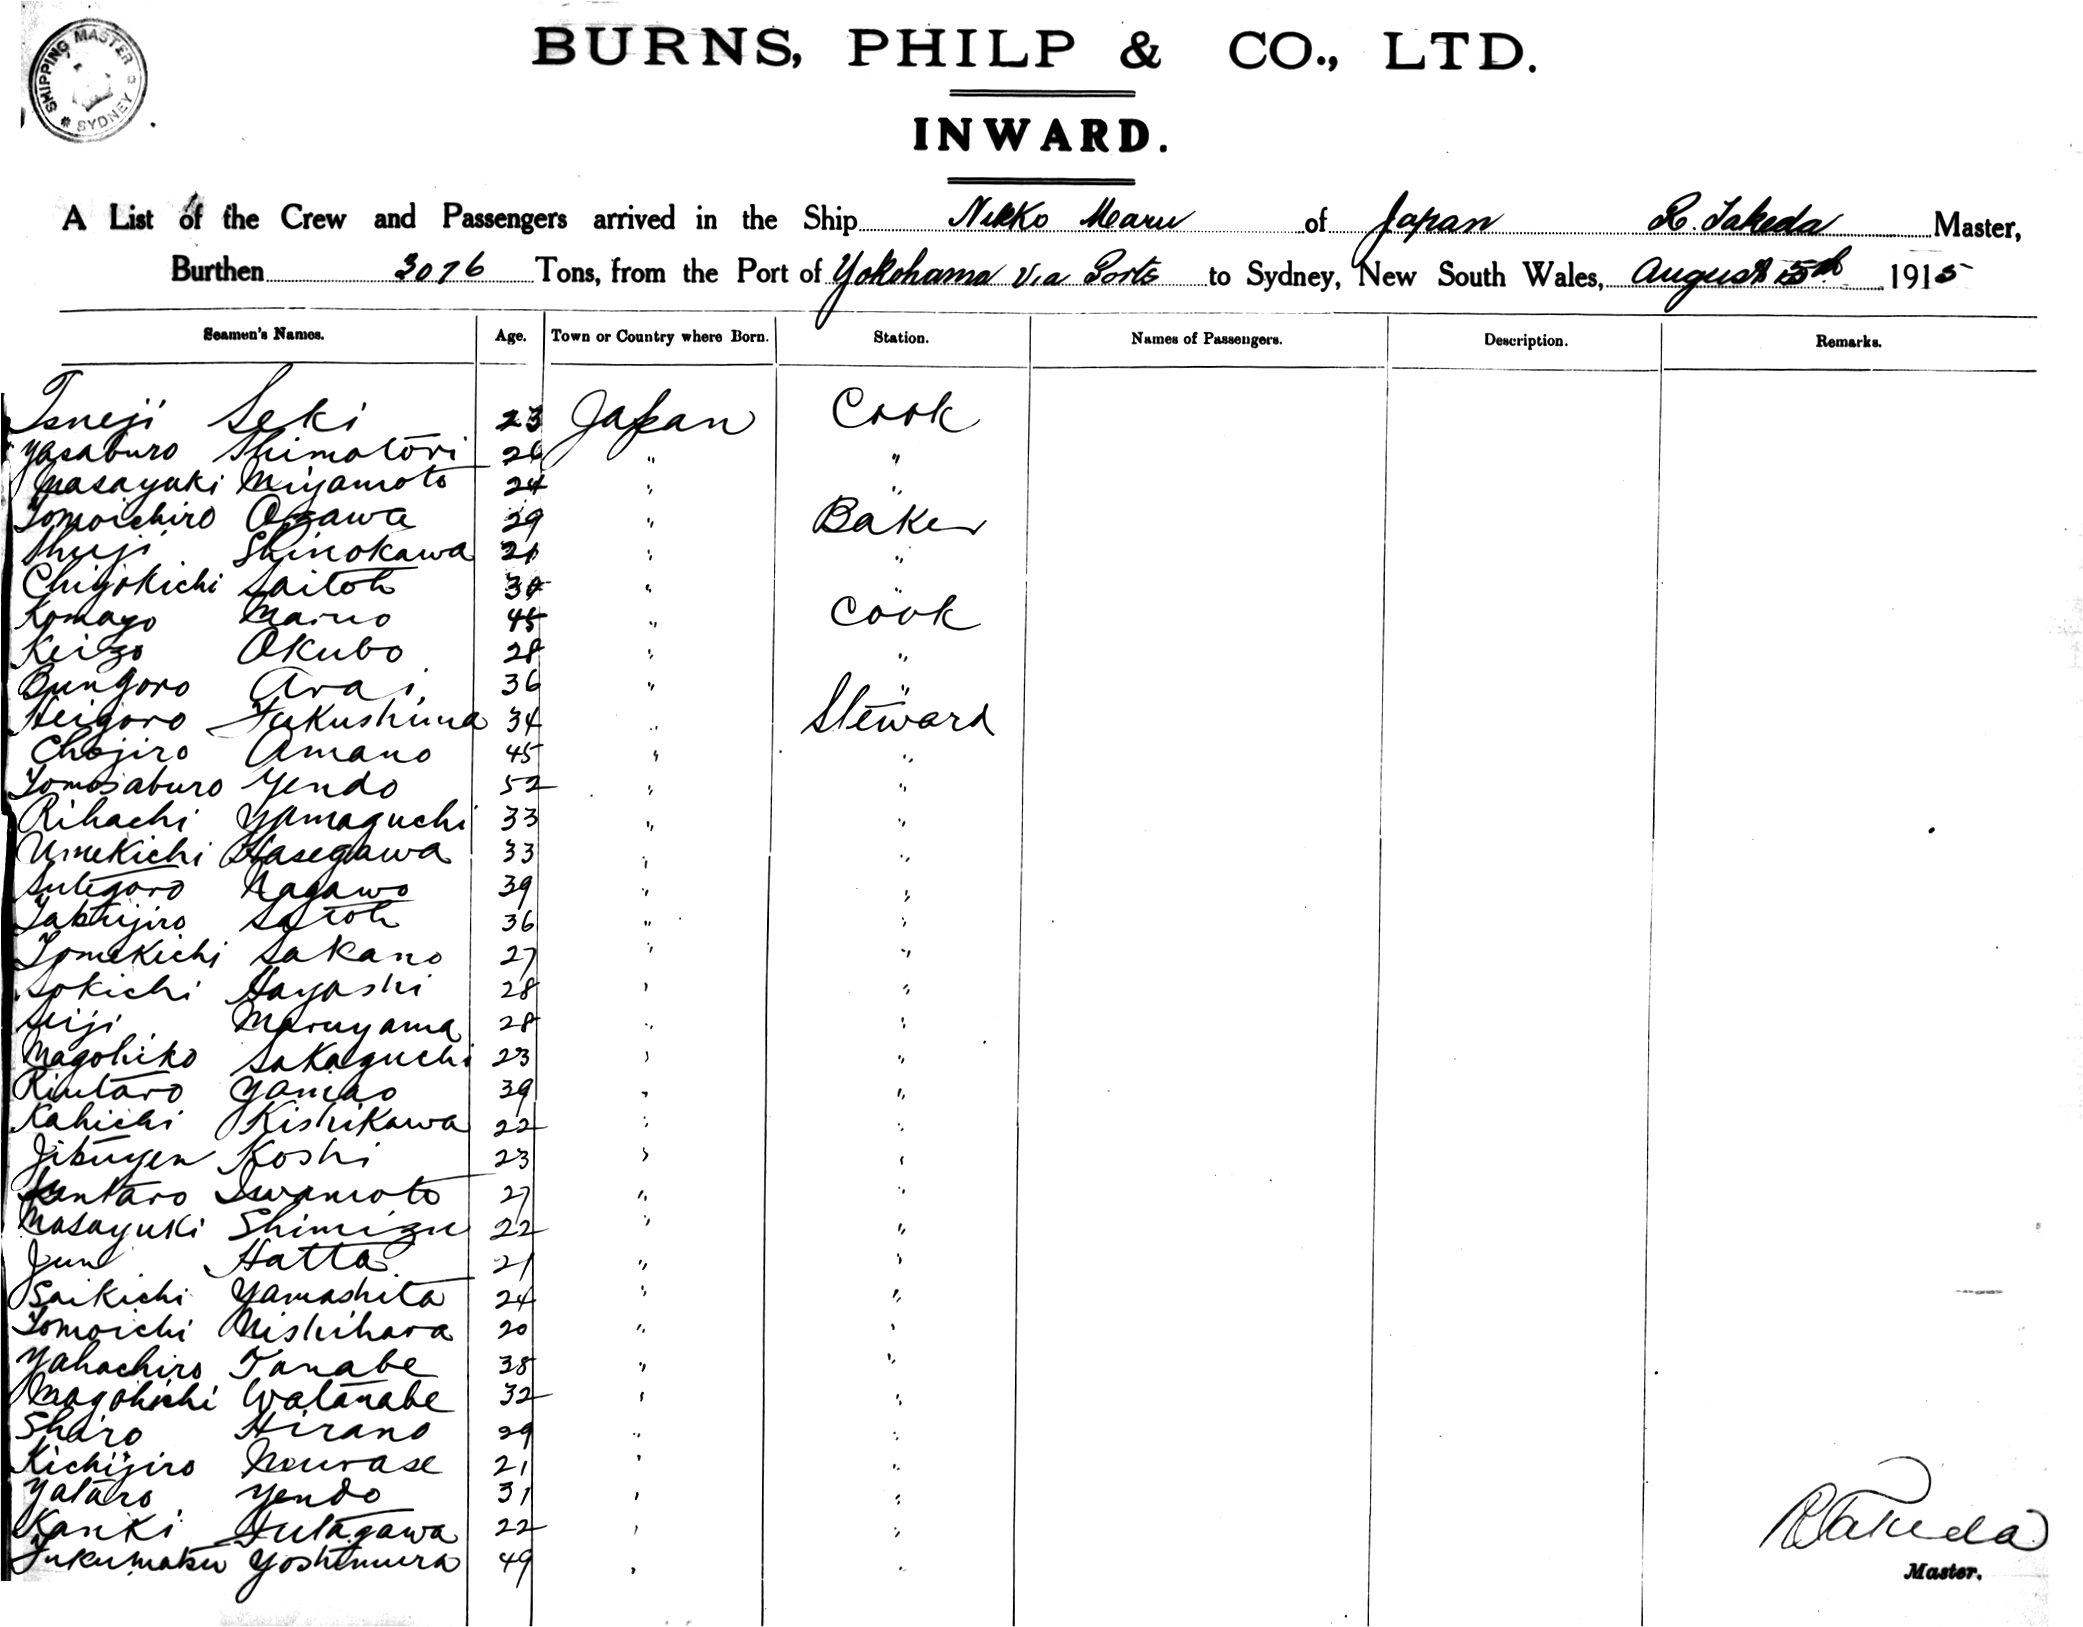 SHIPPING MASTER
SYDNEY
BURNS, PHILP & CO., LTD.
INWARD.
A List of the Crew and Passengers arrived in the Ship Nikko Maru of Japan R. Takeda Master,
Burthen 3076 Tons, from the Port of Yokohama Via Ports to Sydney, New South Wales, August 1915
Seamen's Names. Age. Town or Country where Born. Station. Names of Passengers. Description. Remarks.
Tsneji Seki 23 Japan Cook
Yasaburo Shimotori 26 " "
Masayuki Miyamoto 24 " "
Tomoichiro Ozawa 29 " Baker
Shuji Shinokawa 21 " "
Chiyokichi Saitoh " "
Komago 45 " Cook
Keizo Okubo 28 " "
Bungoro Arai 36 " "
Heigoro Fukushima 34 " Steward
Chojiro Amano 45 " "
Tomosaburo Yendo 52 " "
Rihachi Yamaguchi 33 " "
Umekichi Hasegawa 33 " "
Sutegoro Nagawo 39 " "
Satoh 36 " "
Tomekichi Sakano 27 " "
Sokichi Hayashi 28 " "
Seiji Maruyama 28 " "
Magohiko Sakaguchi 23 " "
Rintaro Yamao 39 " "
Kahichi Kishikawa 22 " "
Koshi 23 " "
Kentaro Iwamoto 27 " "
Masayuki Shimizu 22 " "
Jun Hatta 21 " "
Saikichi Yamashita 24 " "
Tomoichi Nishihara 20 " "
Yahachiro Tanabe 38 " "
Magohichi Watanabe 32 " "
Shiro Hirano 29 " "
Kichijiro Murase 21 " "
Yataro Yendo 31 " "
Kanki Futagawa 22 " "
Fukumatsu Yoshimura 49 " "
R Takeda
Master.